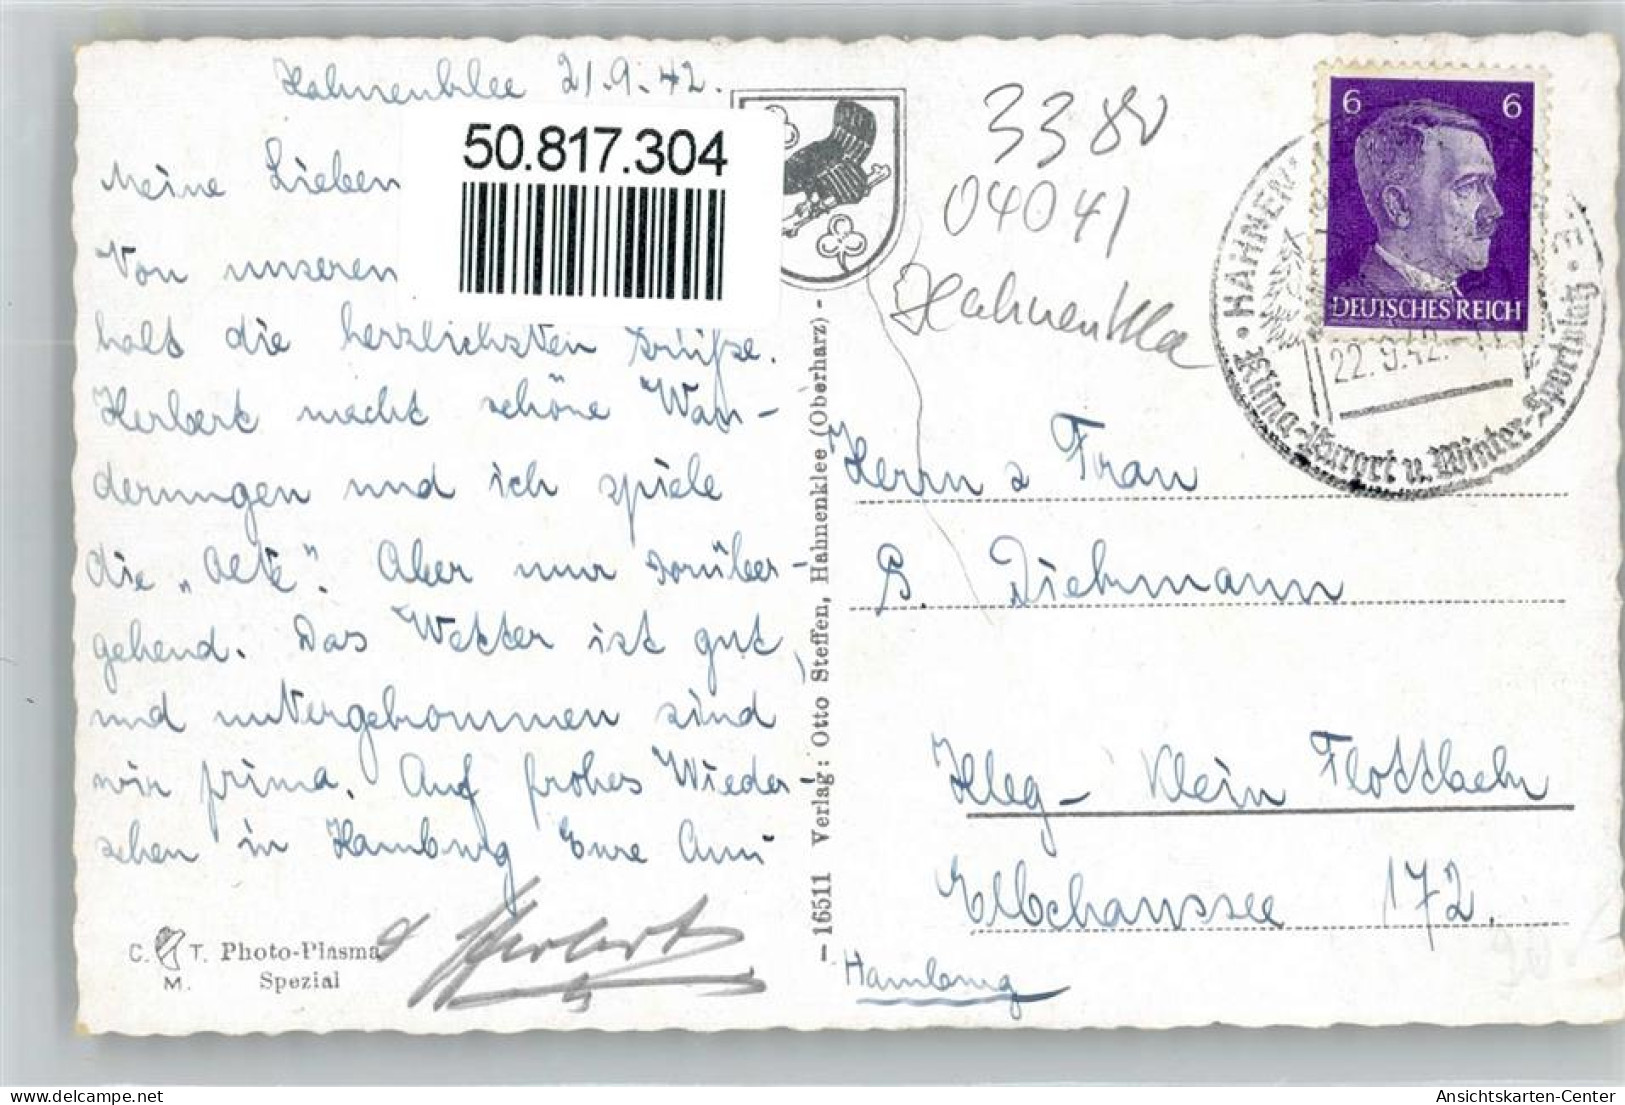 Hahnenklee 21.9.42.
50.817.304
Meine Lieben
Von unseren
halt die herzlichsten Grüße.
Herbert macht schöne Wan-
derungen und ich spiele
die „Alte“. Aber nur vorüber-
gehend. Das Wetter ist gut,
und untergekommen sind
wir prima. Auf frohes Wieder-
sehen in Hamburg Eure Anni
Herbert
C. T. Photo-Plasma
M. Spezial
— 16511 Verlag: Otto Steffen, Hahnenklee (Oberharz) -
3380
04041
Hahnenklee
6 6
DEUTSCHES REICH
HAHNEN
22.9.42.
Klima-Kurort u. Winter-Sportplatz
Herrn u Frau
Diekmann
Klein Flottbek
Elbchaussee 172.
Hamburg
Ansichtskarten-Center